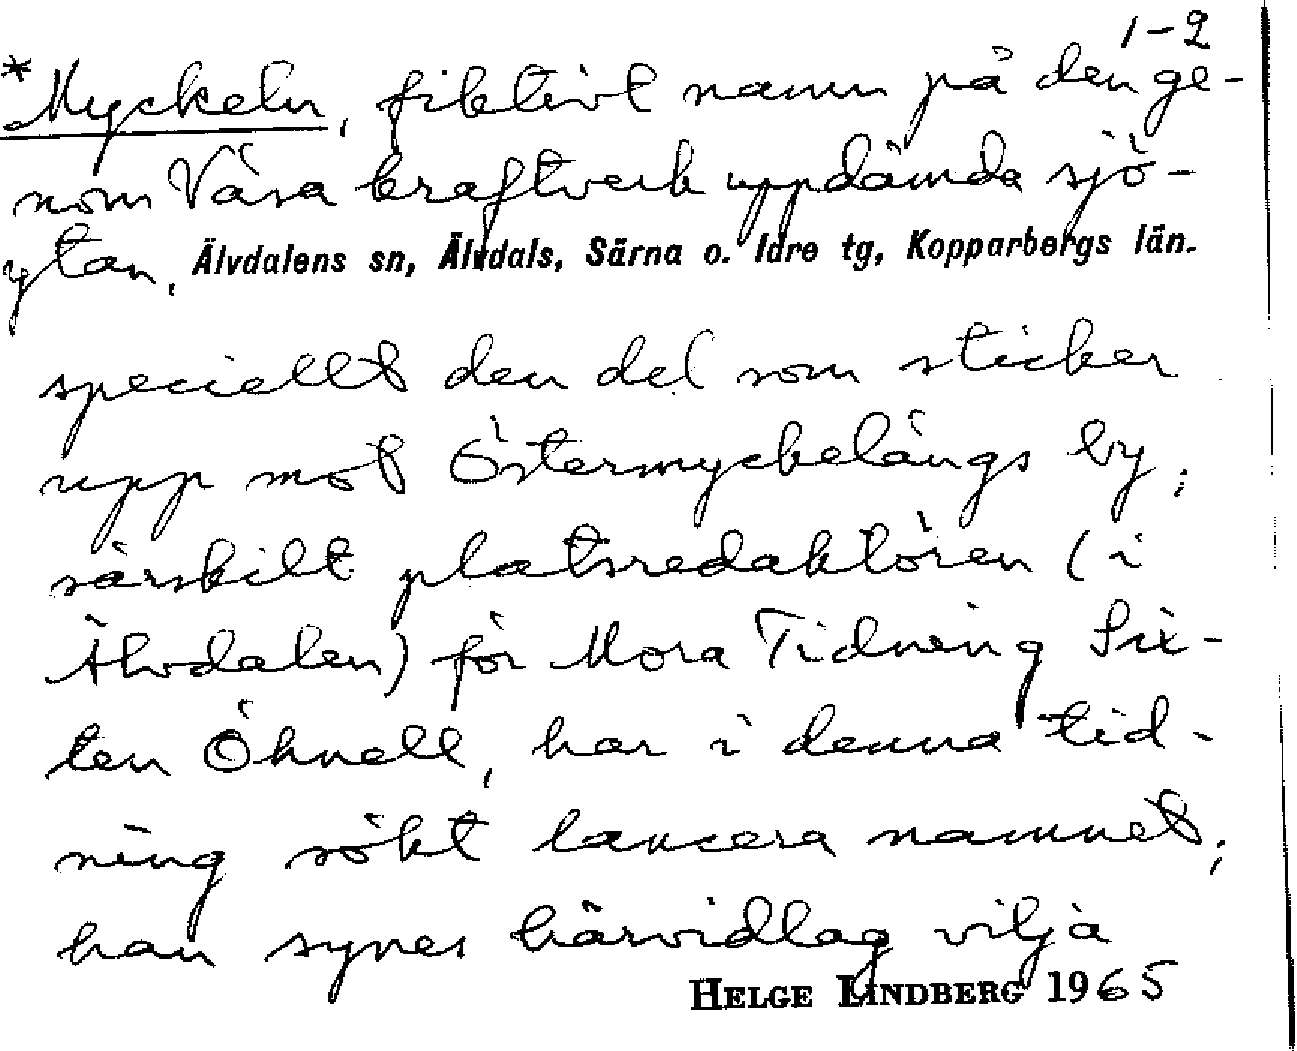 1-2
*Myckeln, fiktivt namn på den ge-
nom Väsa kraftverk uppdämda sjö-
ytan, Älvdalens sn, Älvdals, Särna o. Idre tg, Kopparbergs län.
speciellt den del som sticker
upp mot Östermyckelängs by;
särskilt platsredaktören (i
Älvdalen) för Mora Tidning Six-
ten Öhnell, har i denna tid-
ning sökt lancera namnet;
han synes härvidlag vilja
HELGE LINDBERG 1965